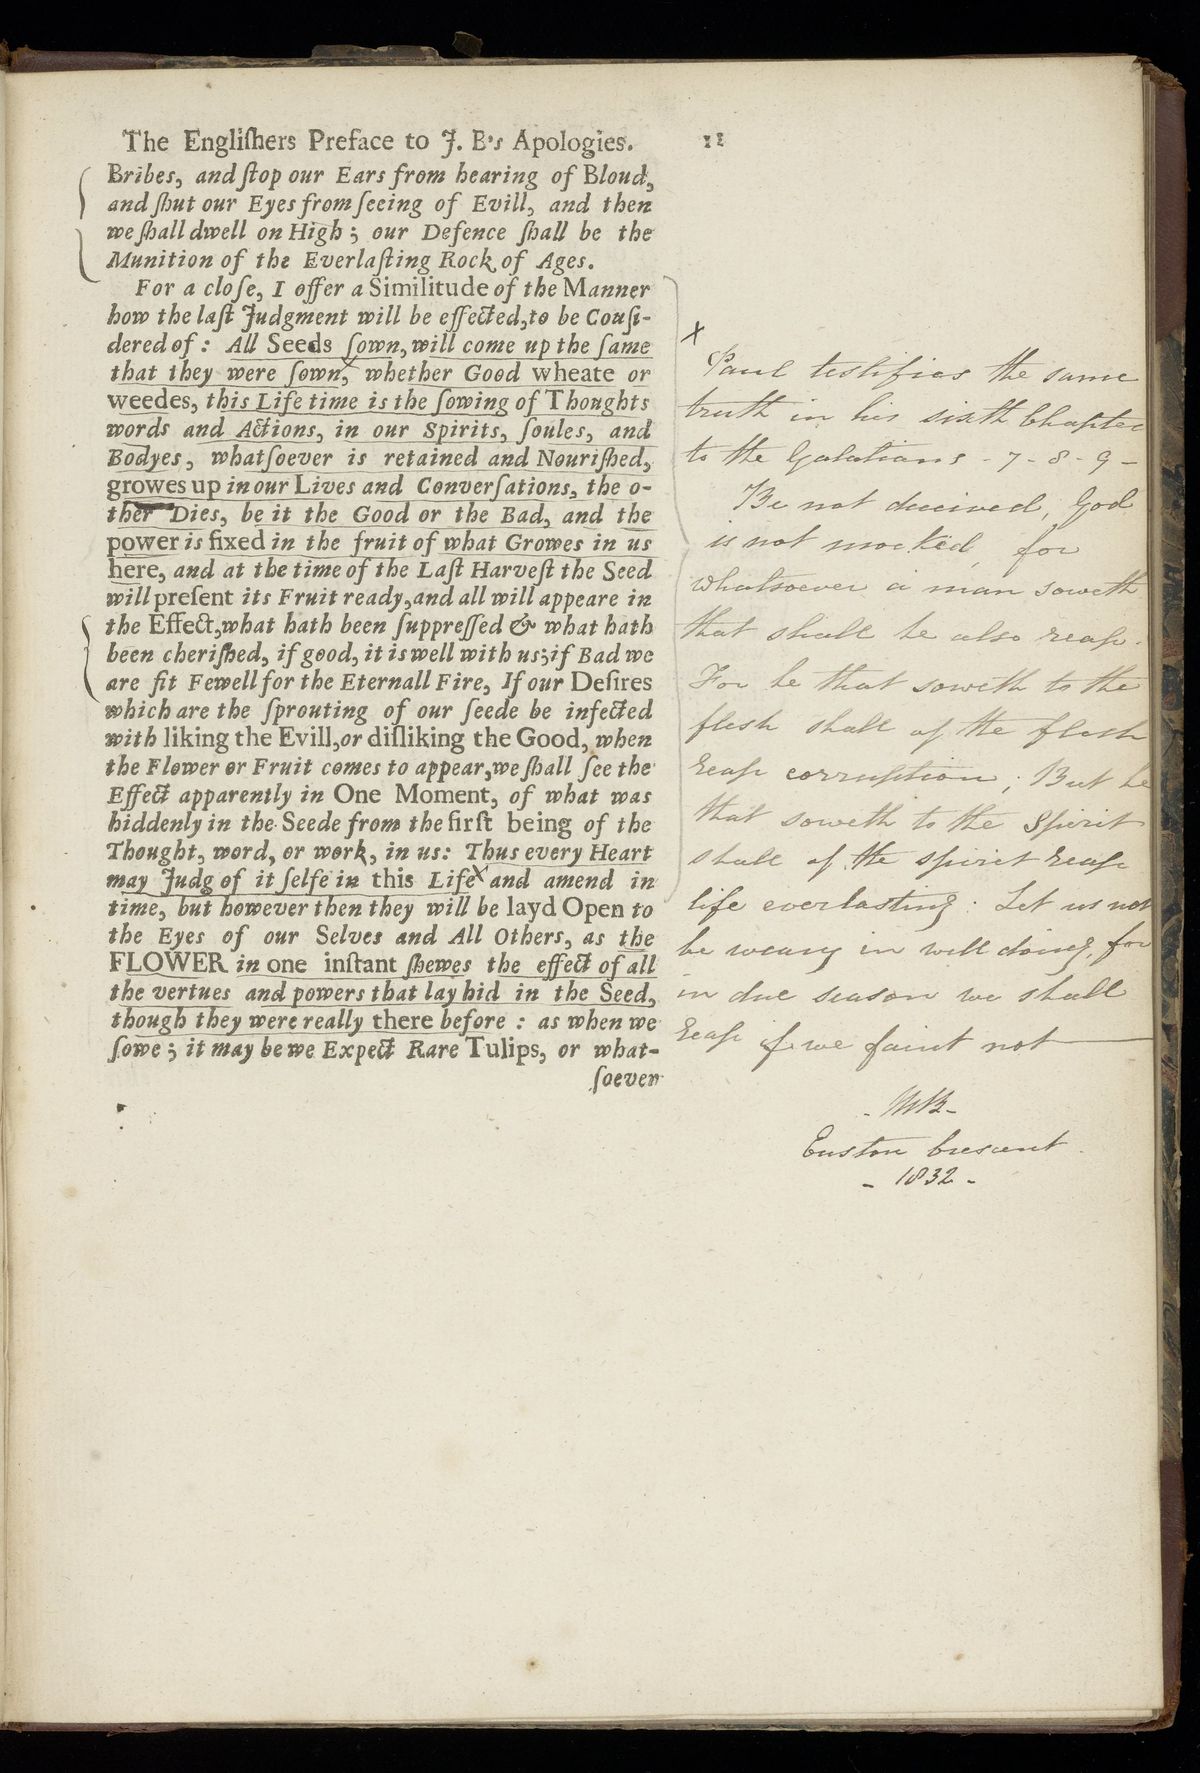 The Engliſhers Preface to J. B's Apologies.
11
Bribes, and ſtop our Ears from hearing of Bloud,
and ſhut our Eyes from ſeeing of Evill, and then
we ſhall dwell on High; our Defence ſhall be the
Munition of the Everlaſting Rock of Ages.
For a cloſe, I offer a Similitude of the Manner
how the laſt Judgment will be effected, to be Conſi-
dered of: All Seeds ſown, will come up the ſame
that they were ſown, whether Good wheate or
weedes, this Life time is the ſowing of Thoughts
words and Actions, in our Spirits, ſoules, and
Bodyes, whatſoever is retained and Nouriſhed,
growes up in our Lives and Converſations, the o-
ther Dies, be it the Good or the Bad, and the
power is fixed in the fruit of what Growes in us
here, and at the time of the Laſt Harveſt the Seed
will preſent its Fruit ready, and all will appeare in
the Effect, what hath been ſuppreſſed & what hath
been cheriſhed, if good, it is well with us; if Bad we
are fit Fewell for the Eternall Fire, If our Deſires
which are the ſprouting of our ſeede be infected
with liking the Evill, or diſliking the Good, when
the Flower or Fruit comes to appear, we ſhall ſee the
Effect apparently in One Moment, of what was
hiddenly in the Seede from the firſt being of the
Thought, word, or work, in us: Thus every Heart
may Judg of it ſelfe in this Life x and amend in
time, but however then they will be layd Open to
the Eyes of our Selves and All Others, as the
FLOWER in one inſtant ſhewes the effect of all
the vertues and powers that lay hid in the Seed,
though they were really there before: as when we
ſowe; it may be we Expect Rare Tulips, or what-
ſoever
x
Paul testifies the same
truth in his sixth Chapter
to the Galatians - 7 - 8 - 9 -
Be not deceived, God
is not mocked, for
whatsoever a man soweth
that shall he also reap.
For he that soweth to the
flesh shall of the flesh
reap corruption; But he
that soweth to the Spirit
shall of the spirit reap
life everlasting: Let us not
be weary in well doing, for
in due season we shall
reap if we faint not
- MB -
Euston Crescent
- 1832 -